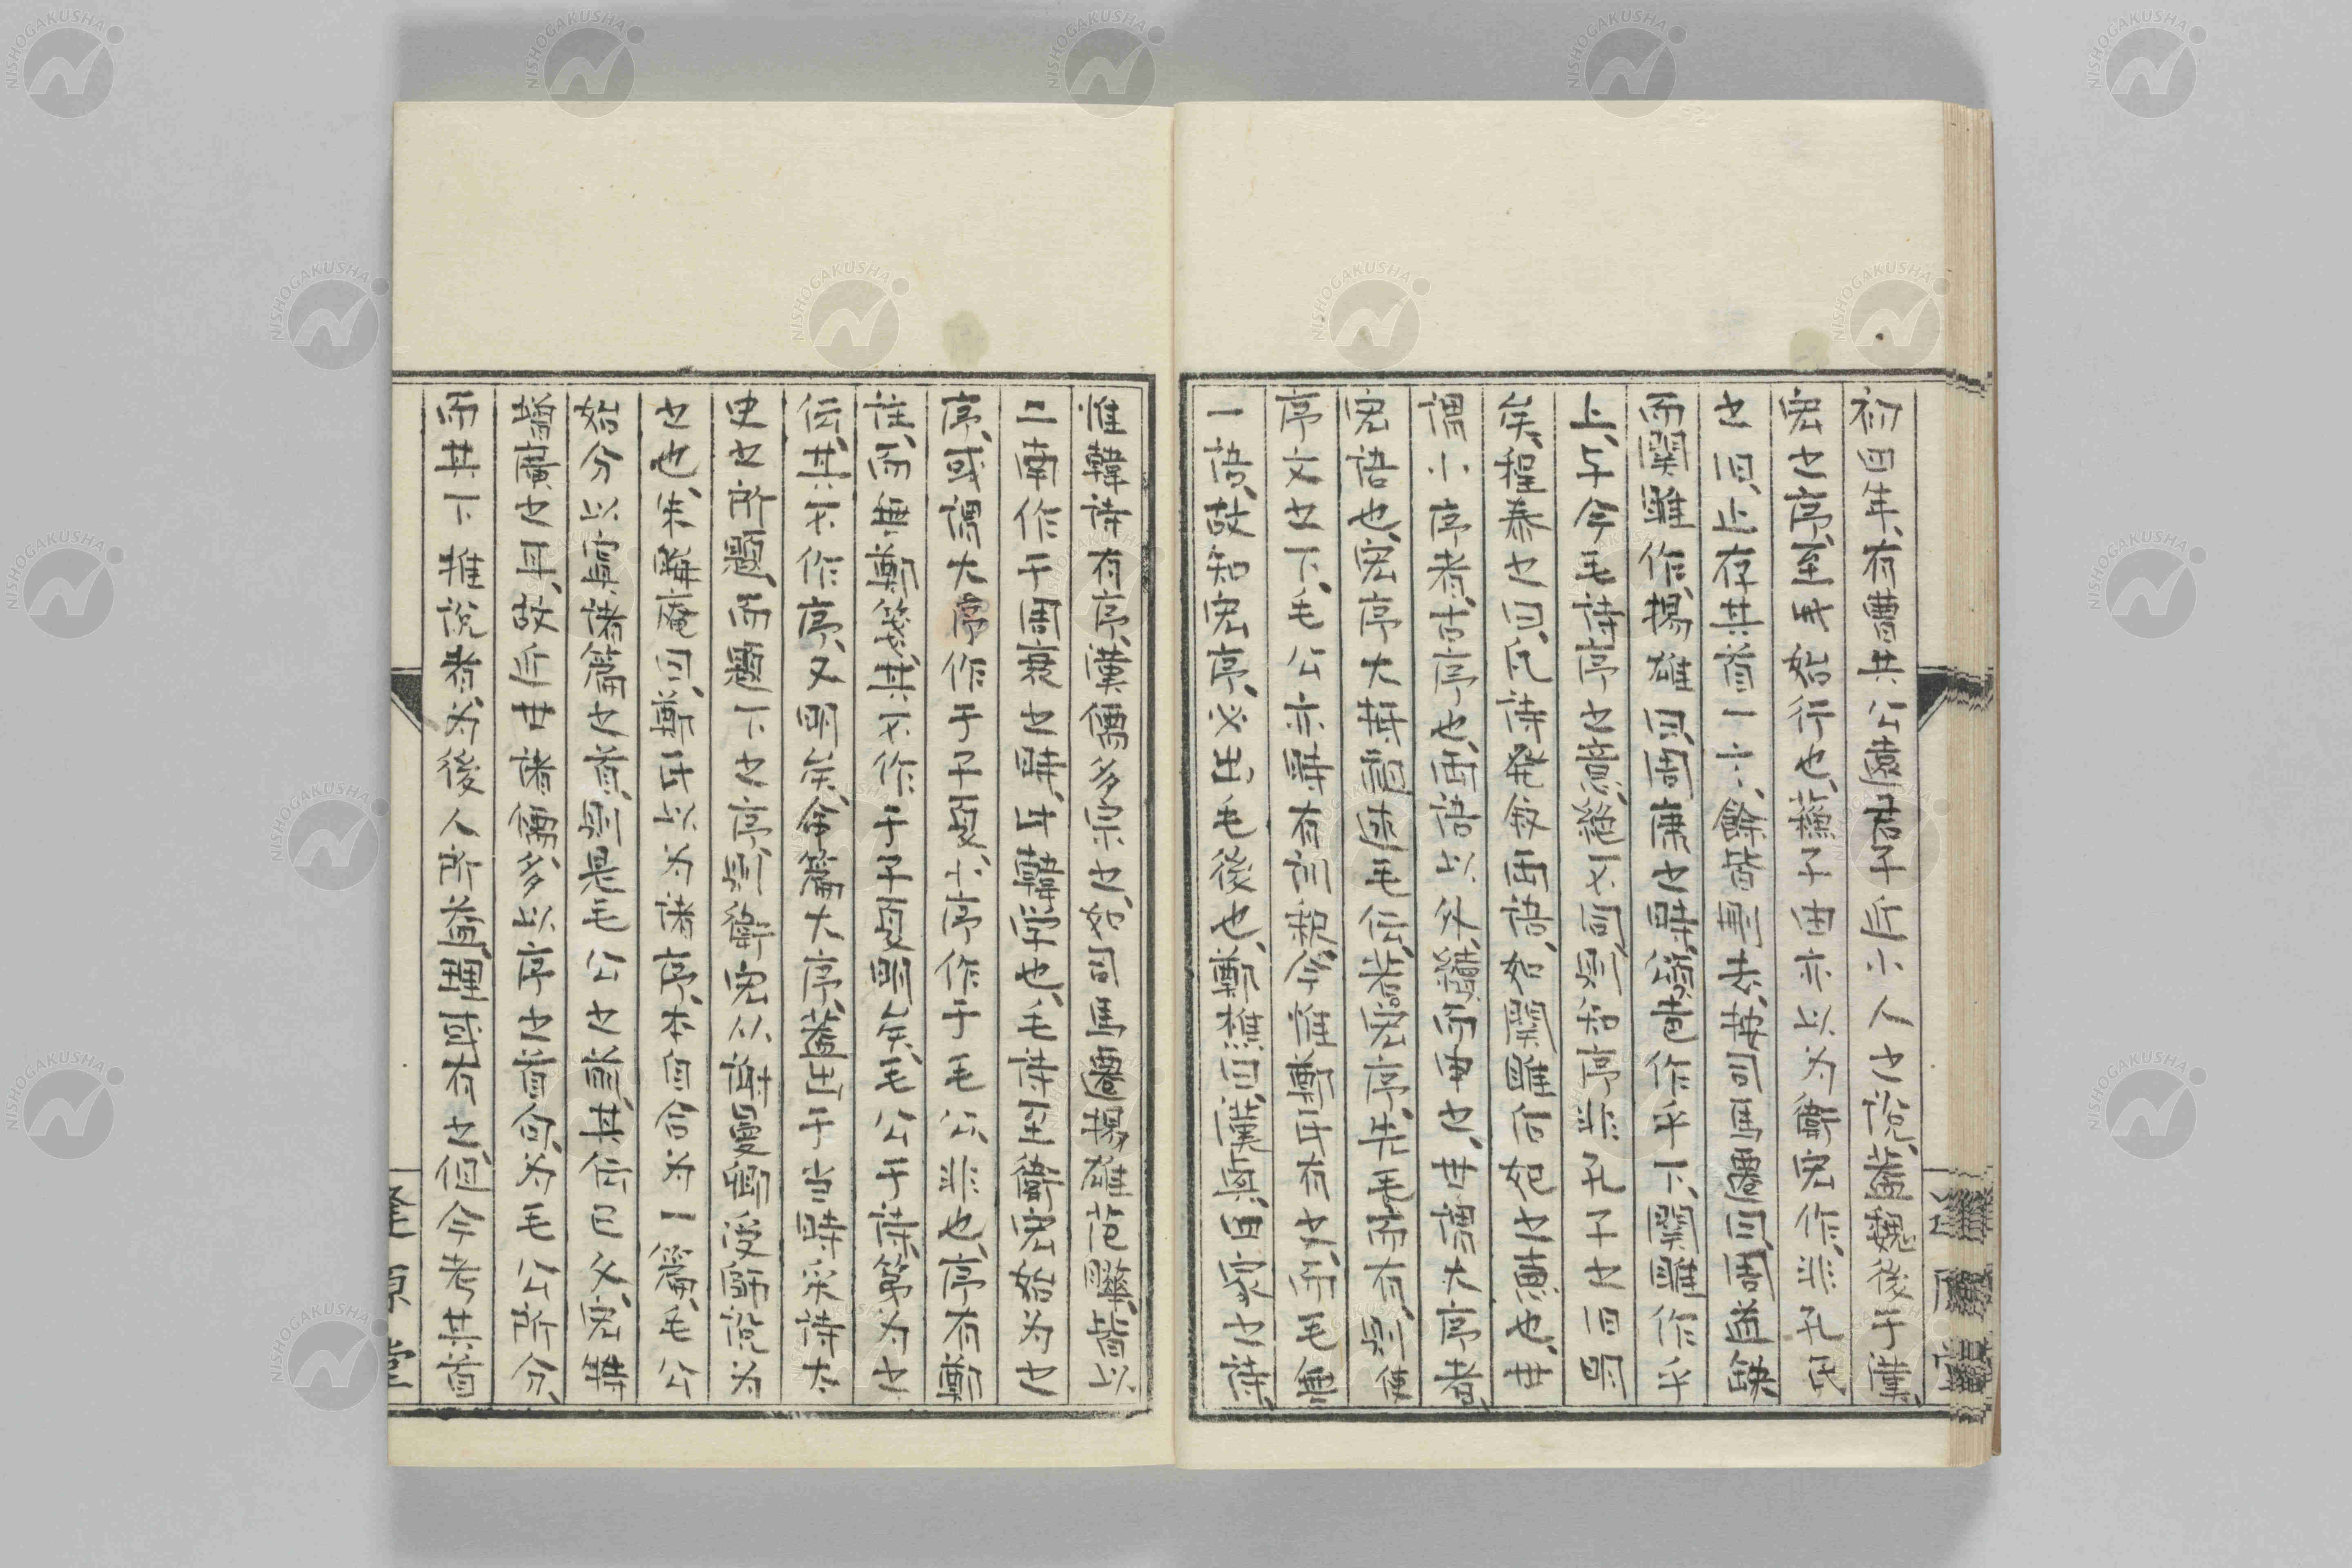 初四年、有曹共公遠君子近小人之說、蓋魏後于漢、
宏之序、至此始行也、蘓子由亦以为衛宏作、非孔氏
之旧、止存其首一言、餘皆刪去、按司馬遷曰、周道缺
而関雎作、揚雄曰、周康之時、頌声作乎下、関雎作乎
上、与今毛詩序之意絶不同、則知序非孔子之旧明
矣、程泰之曰、凡詩発敘兩語、如関雎后妃之悳也、世
謂小序者、古序也、兩語以外、續而申之、世謂大序者、
宏語也、宏序大抵祖述毛伝、若宏序先毛而有、則使
序文之下、毛公亦時有訓釈、今惟鄭氏有之、而毛無
一語、故知宏序、必出毛後也、鄭樵曰、漢興、四家之詩、
惟韓詩有序、漢儒多宗之、如司馬遷揚雄范曄、皆以
二南作于周衰之時、此韓学也、毛詩至衛宏始为之
序、或謂大序作于子夏、小序作于毛公、非也、序有鄭
註、而無鄭箋、其不作于子夏明矣、毛公于詩第为之
伝、其不作序、又明矣、命篇大序、蓋出于当時采詩太
史之所題、而題下之序、則衛宏从謝曼卿受師說为
之也、朱晦庵曰、鄭氏以为諸序、本自合为一篇、毛公
始分以寘諸篇之首、則是毛公之前、其伝已久、宏特
增廣之耳、故近世諸儒、多以序之首句、为毛公所分、
而其下推說者、为後人所益、理或有之、但今考其首